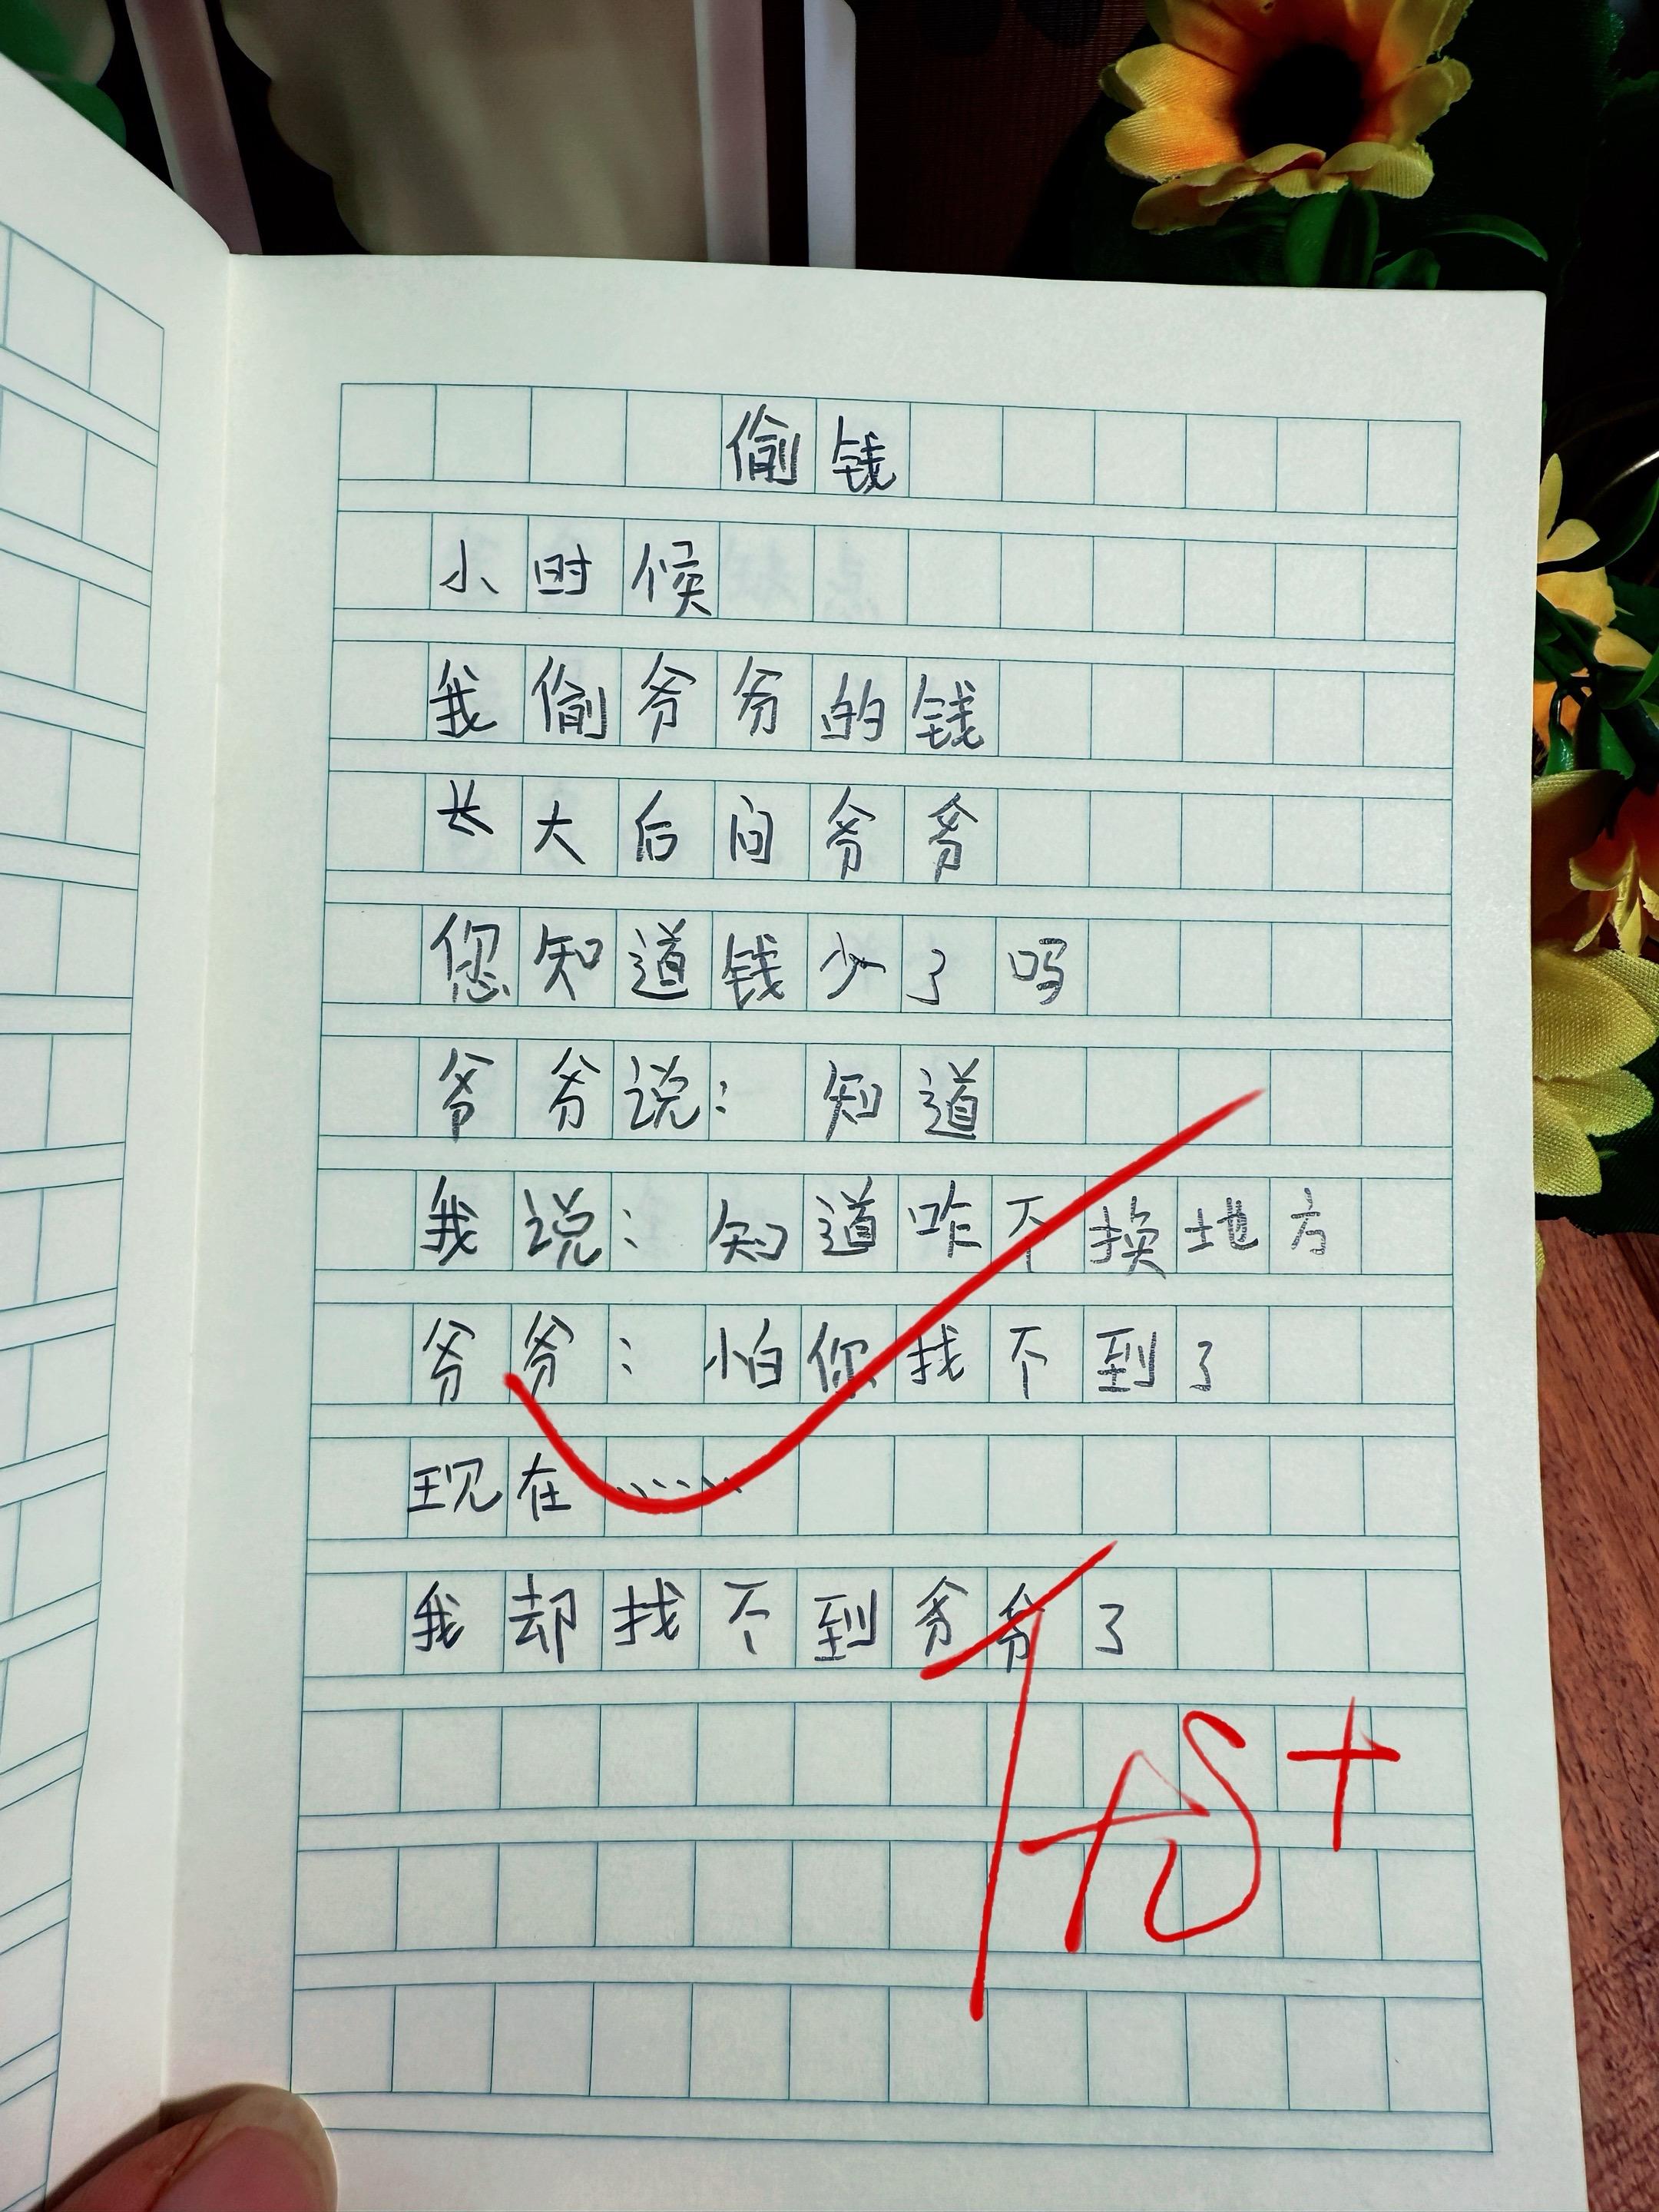 偷钱
小时候
我偷爷爷的钱
长大后问爷爷
您知道钱少了吗
爷爷说：知道
我说：知道咋不换地方
爷爷：怕你找不到了
现在……
我却找不到爷爷了
优+